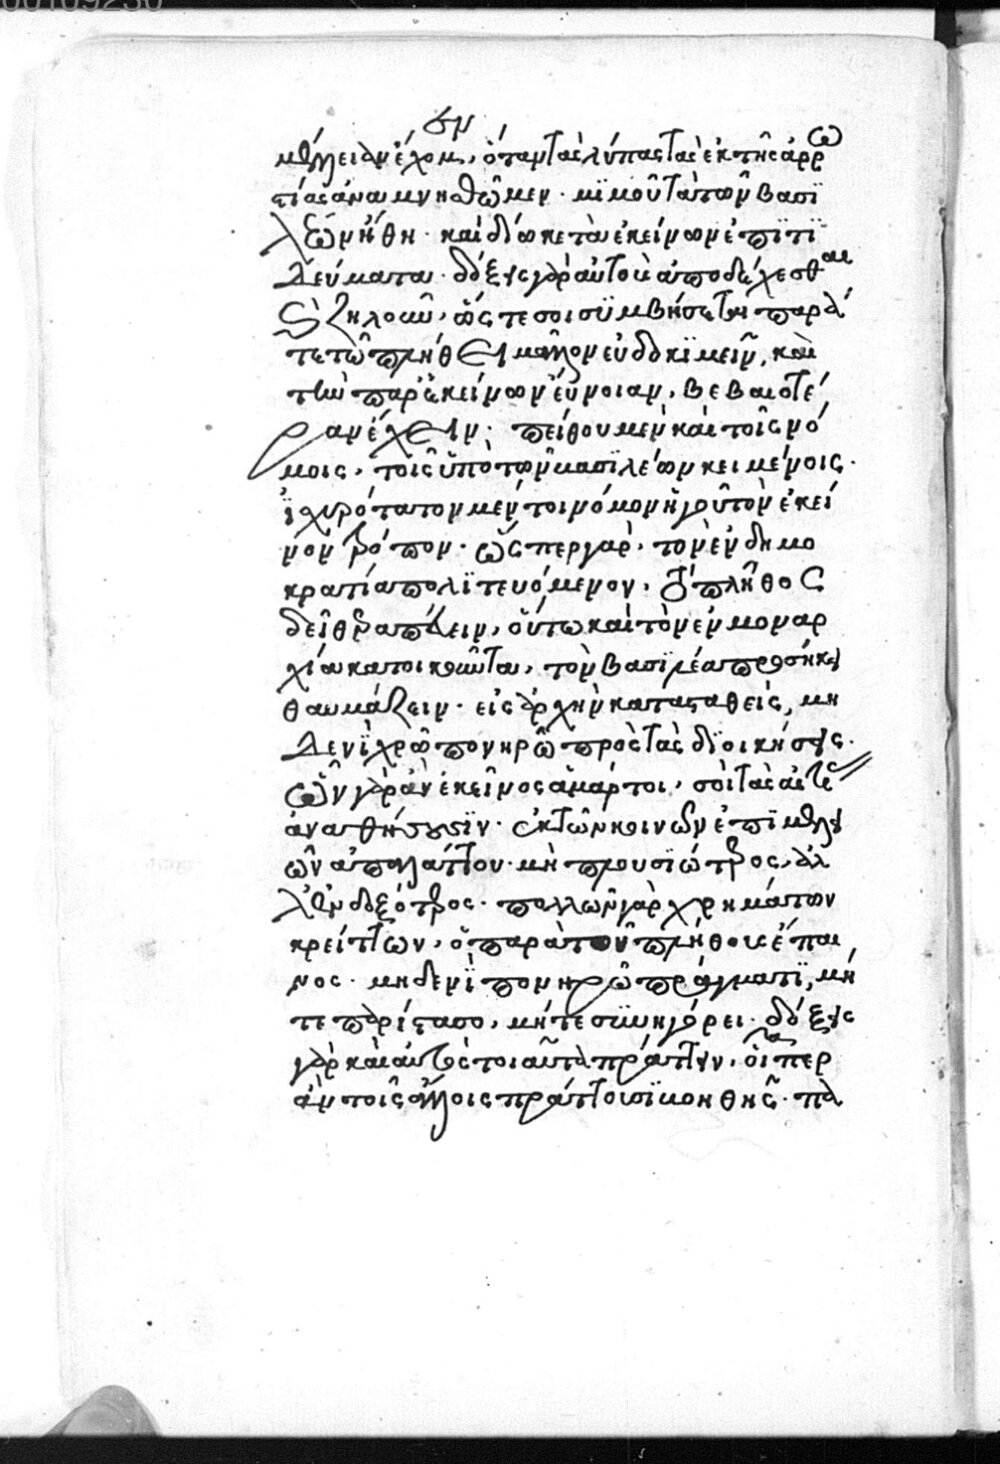 σμ
μέλλειαν ἔχομεν, ὅταν τὰς λύπας τὰς ἐκ τῆς ἀρρω
στίας ἀναμνησθῶμεν. μιμοῦ τὰ τῶν βασι
λέων ἤθη. καὶ δίωκε τὰ ἐκείνων ἐπιτη
δεύματα. δόξεις γὰρ αὐτοὺς ἀποδέχεσθαι
καὶ ζηλοῦν, ὥστε σοι συμβήσεται παρά
τε τῷ πλήθει μᾶλλον εὐδοκιμεῖν, καὶ
τὴν παρ' ἐκείνων εὔνοιαν, βεβαιοτέ
ραν ἔχειν. πείθου μὲν καὶ τοῖς νό
μοις, τοῖς ὑπὸ τῶν βασιλέων κειμένοις.
ἰσχυρότατον μέντοι νόμον ἡγοῦ τὸν ἐκεί
νων τρόπον. ὥσπερ γὰρ, τὸν ἐν δημο
κρατίᾳ πολιτευόμενον, τὸ πλῆθος
δεῖ θεραπεύειν, οὕτω καὶ τὸν ἐν μοναρ
χίᾳ κατοικοῦντα, τὸν βασιλέα προσήκει
θαυμάζειν. εἰς ἀρχὴν κατασταθεὶς, μη
δενὶ χρῶ πονηρῷ πρὸς τὰς διοικήσεις.
ὧν γὰρ ἂν ἐκεῖνος ἁμάρτοι, σοὶ τὰς αἰτίας
ἀναθήσουσιν. ἐκ τῶν κοινῶν ἐπιμελει
ῶν ἀπαλλάττου. μὴ πλουσιώτερος, ἀλ
λ' ἐνδοξότερος. πολλῶν γὰρ χρημάτων
κρείττων, ὁ παρὰ τοῦ πλήθους ἔπαι
νος. μηδενὶ πονηρῷ πράγματι, μή
τε παρίστασο, μήτε συνηγόρει. δόξεις
γὰρ καὶ αὐτὸς τοιαῦτα πράττειν, οἷά περ
ἂν τοῖς ἄλλοις πράττουσι βοηθῇς. πα